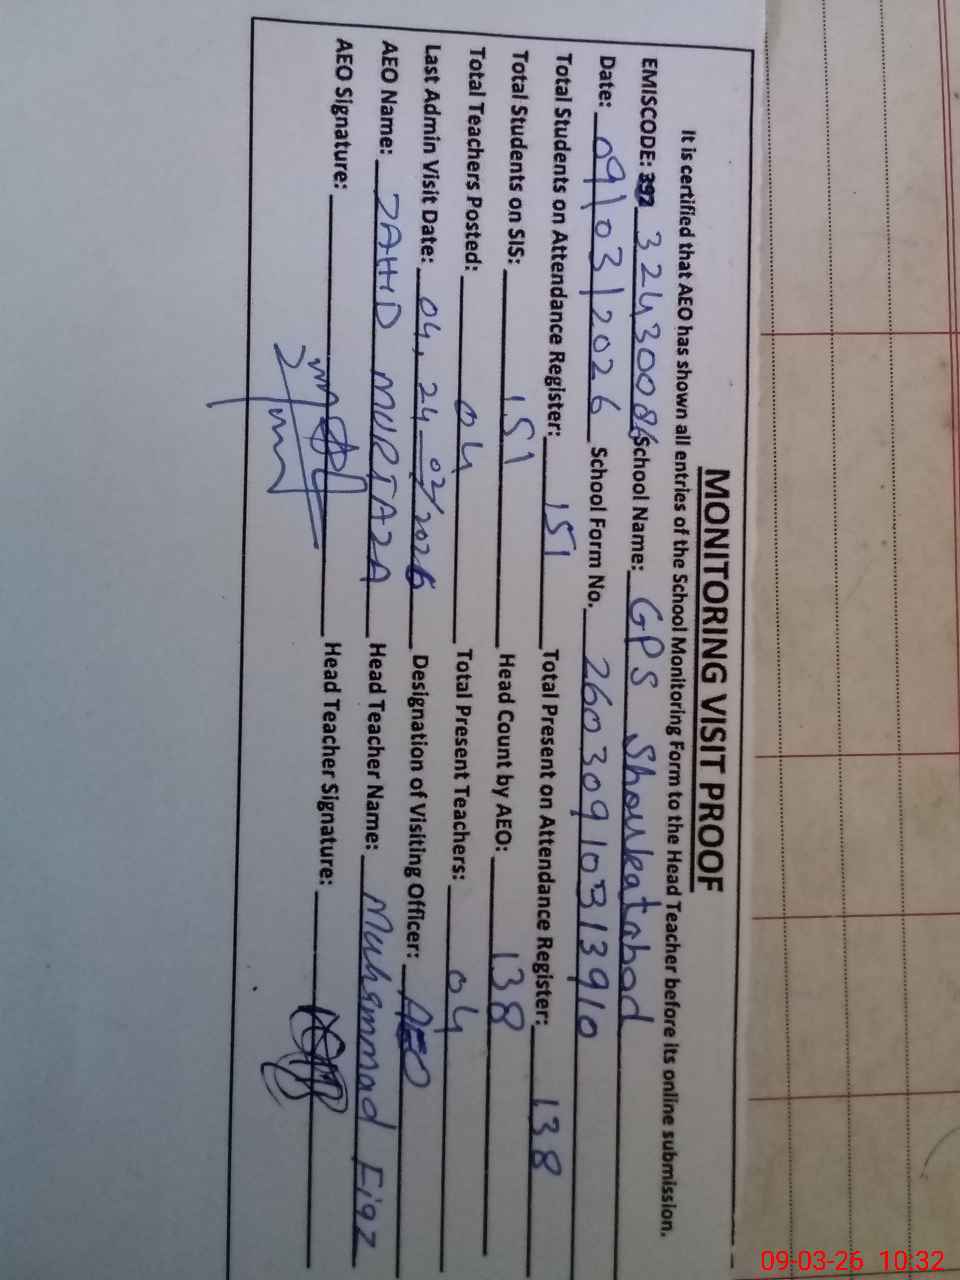 MONITORING VISIT PROOF
It is certified that AEO has shown all entries of the School Monitoring Form to the Head Teacher before its online submission.
EMISCODE: 392 32430086 School Name: GPS Shoukatabad
Date: 09/03/2026 School Form No. 26030910313910
Total Students on Attendance Register: 151 Total Present on Attendance Register: 138
Total Students on SIS: 151 Head Count by AEO: 138
Total Teachers Posted: 04 Total Present Teachers: 04
Last Admin Visit Date: 04, 24 02/2026 Designation of Visiting Officer: AEO
AEO Name: ZAHID MURTAZA Head Teacher Name: Muhammad Fiaz
AEO Signature: Head Teacher Signature:
09-03-26 10:32